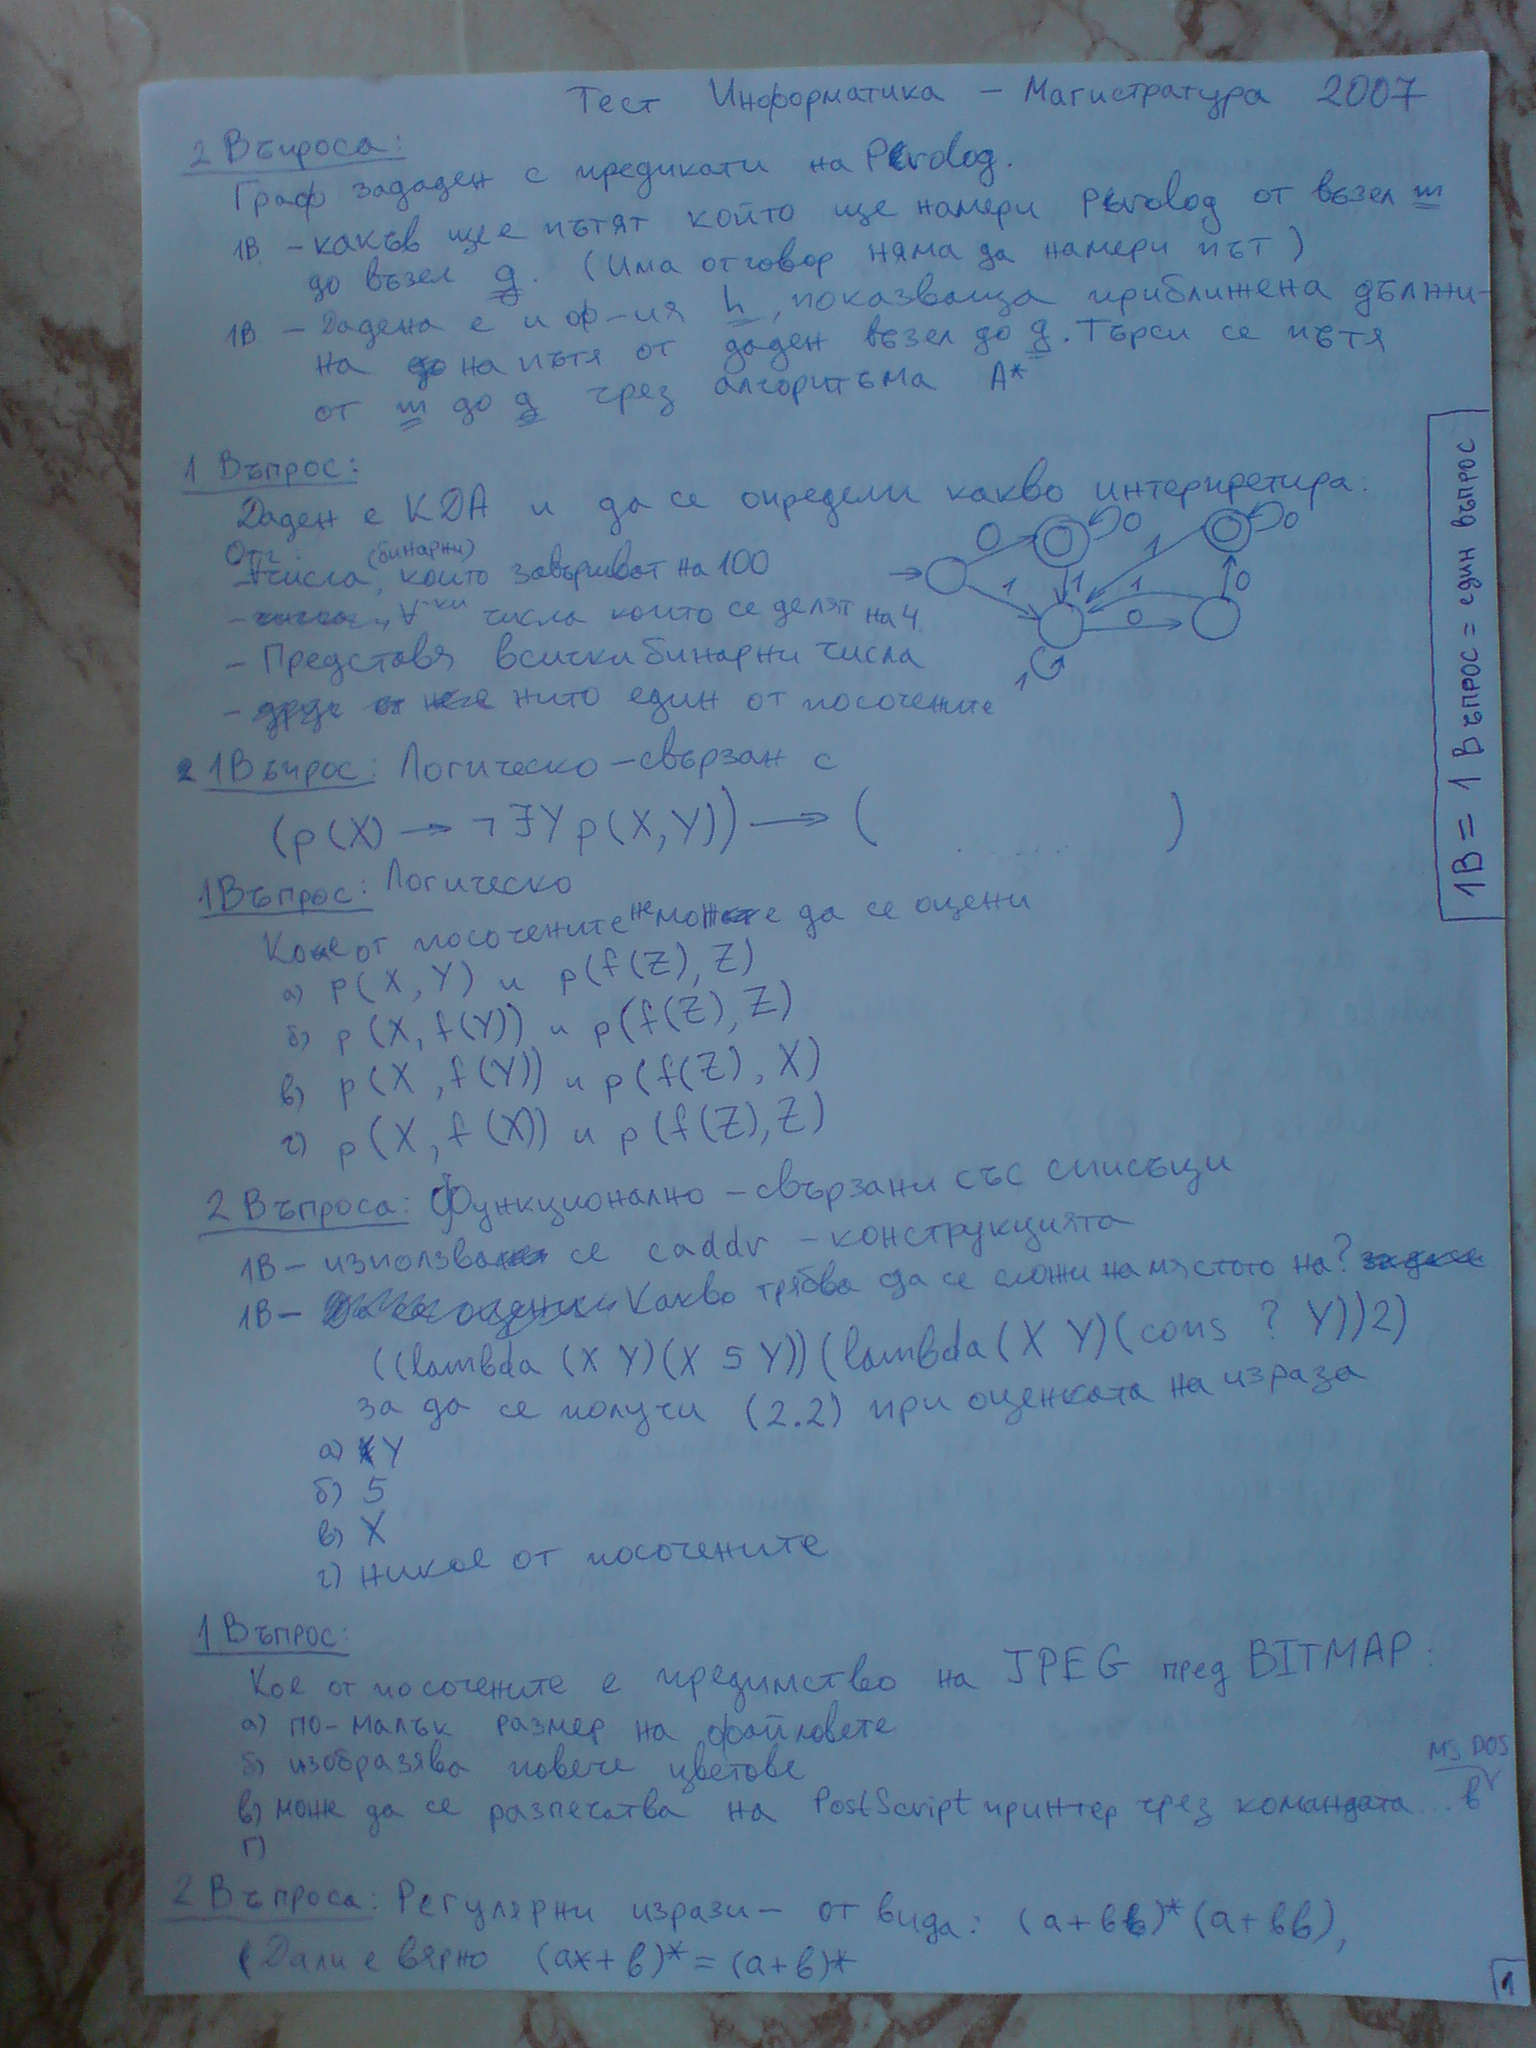 Тест Информатика - Магистратура 2007
2 Въпроса:
Граф зададен с предикати на Prolog.
1В - какъв ще е пътят който ще намери Prolog от възел m
до възел g. (Има отговор няма да намери път)
1В - Дадена е и ф-ия h, показваща приближена дължи-
на на пътя от даден възел до g. Търси се пътя
от m до g чрез алгоритъма A*
1 Въпрос:
Даден е КДА и да се определи какво интерпретира:
Отг:
- числа (бинарни), които завършват на 100
- ∀-ки числа които се делят на 4
- Представя всички бинарни числа
- нито един от посочените
0 0 1 0
1 1 1 0
0
1
1В = 1 Въпрос = един въпрос
1 Въпрос: Логическо - свързан с
(p(X) → ¬∃Y p(X,Y)) → ( ..... )
1 Въпрос: Логическо
Кое от посочените не може да се оцени
а) p(X, Y) и p(f(Z), Z)
б) p(X, f(Y)) и p(f(Z), Z)
в) p(X, f(Y)) и p(f(Z), X)
г) p(X, f(X)) и p(f(Z), Z)
2 Въпроса: Функционално - свързани със списъци
1В - използва се caddr - конструкцията
1В - Какво трябва да се сложи на мястото на ?
((lambda (X Y)(X 5 Y))(lambda (X Y)(cons ? Y))2)
за да се получи (2.2) при оценката на израза
а) Y
б) 5
в) X
г) никое от посочените
1 Въпрос:
Кое от посочените е предимство на JPEG пред BITMAP:
а) по-малък размер на файловете
б) изобразява повече цветове
в) може да се разпечатва на PostScript принтер чрез командата ... в MS DOS
г)
2 Въпроса: Регулярни изрази - от вида: (a+bb)*(a+bb),
(Дали е вярно (a*+b)* = (a+b)*
1